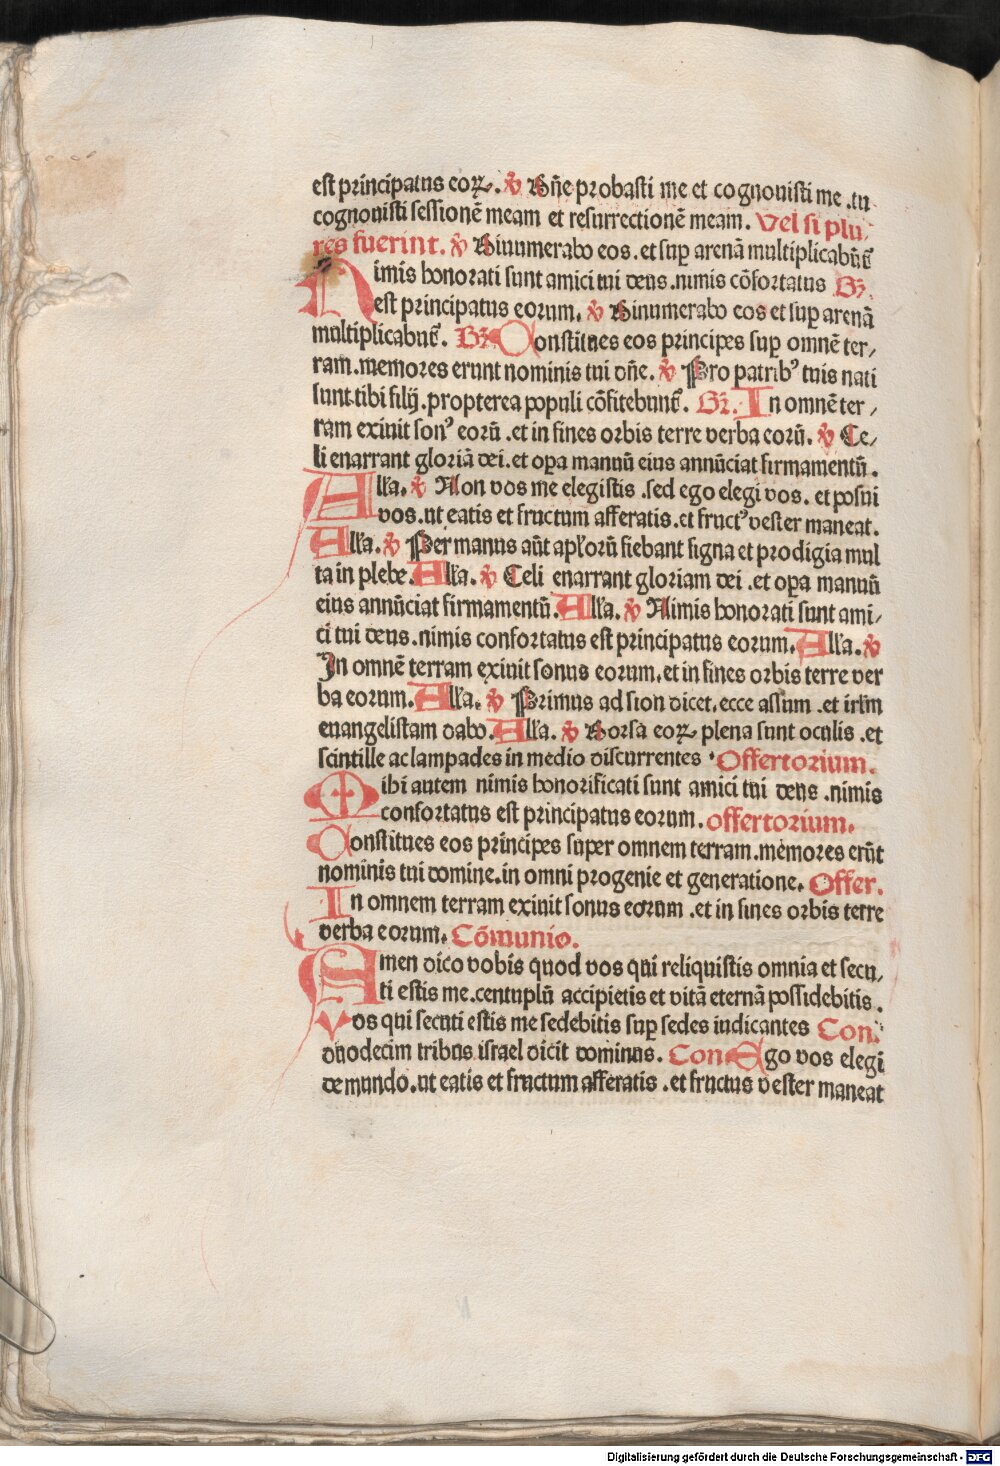 est principatus eoꝝ. ℣ Dñe probasti me et cognouisti me .tu
cognouisti sessionē meam et resurrectionē meam. Vel si plu⸗
res fuerint. ℣ Dinumerabo eos .et suꝑ arenā multiplicabūt᷑
Nimis honorati sunt amici tui deus .nimis cōfortatus Bꝛ.
est principatus eorum. ℣ Dinumerabo eos et suꝑ arenā
multiplicabūt᷑. Bꝛ. Constitues eos principes suꝑ omnē ter⸗
ram .memores erunt nominis tui dñe. ℣ Pro patribꝰ tuis nati
sunt tibi filij .propterea populi cōfitebunt᷑. Bꝛ. In omnē ter⸗
ram exiuit sonꝰ eorū .et in fines orbis terre verba eorū. ℣ Ce⸗
li enarrant gloriā dei .et oꝑa manuū eius annūciat firmamentū.
Alla. ℣ Non vos me elegistis .sed ego elegi vos .et posui
vos .ut eatis et fructum afferatis .et fructꝰ vester maneat.
Alla. ℣ Per manus aūt apłorū fiebant signa et prodigia mul
ta in plebe. Alla. ℣ Celi enarrant gloriam dei .et oꝑa manuū
eius annūciat firmamentū. Alla. ℣ Nimis honorati sunt ami⸗
ci tui deus .nimis confortatus est principatus eorum. Alla. ℣
In omnē terram exiuit sonus eorum .et in fines orbis terre ver
ba eorum. Alla. ℣ Primus ad sion dicet .ecce assum .et irlm
euangelistam dabo. Alla. ℣ Dorsa eoꝝ plena sunt oculis .et
scintille ac lampades in medio discurrentes . Offertorium.
Mihi autem nimis honorificati sunt amici tui deus .nimis
confortatus est principatus eorum. offertorium.
Constitues eos principes super omnem terram .memores erūt
nominis tui domine .in omni progenie et generatione. Offer.
In omnem terram exiuit sonus eorum .et in fines orbis terre
verba eorum. Cōmunio.
Amen dico vobis quod vos qui reliquistis omnia et secu⸗
ti estis me .centuplū accipietis et vitā eternā possidebitis.
Vos qui secuti estis me sedebitis suꝑ sedes iudicantes Con.
duodecim tribus israel dicit dominus. Con. Ego vos elegi
de mundo .ut eatis et fructum afferatis .et fructus vester maneat
Digitalisierung gefördert durch die Deutsche Forschungsgemeinschaft - DFG